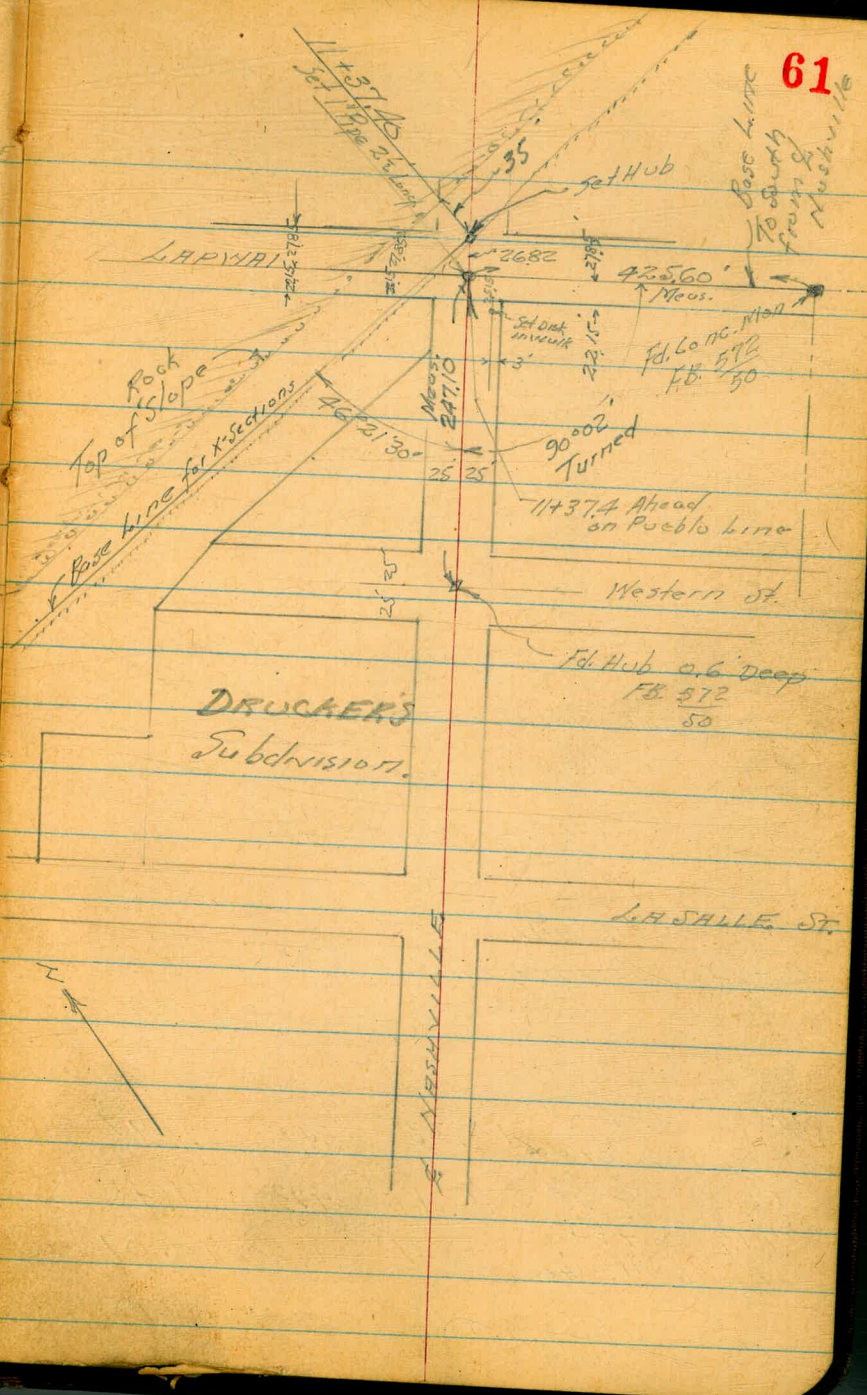 61
11+37.40
Set 1" Pipe 2½ Long
35
Set Hub
Base Line
To South
from ℄
Nashville
LAPWAI
26.82
425.60'
Meas.
22.15
27.85
Set Disk
in walk
3'
22.15
Fd. Conc. Mon
F.B. 572
50
Rock
Top of Slope
Base Line for X-Sections
Meas.
247.10
46°21'30"
90°02'
Turned
25' 25'
11+37.4 Ahead
on Pueblo Line
25' 25'
Western St.
Fd. Hub 0.6' Deep
F.B. 572
50
DRUCKER'S
Subdivision.
LASALLE ST.
℄ NASHVILLE